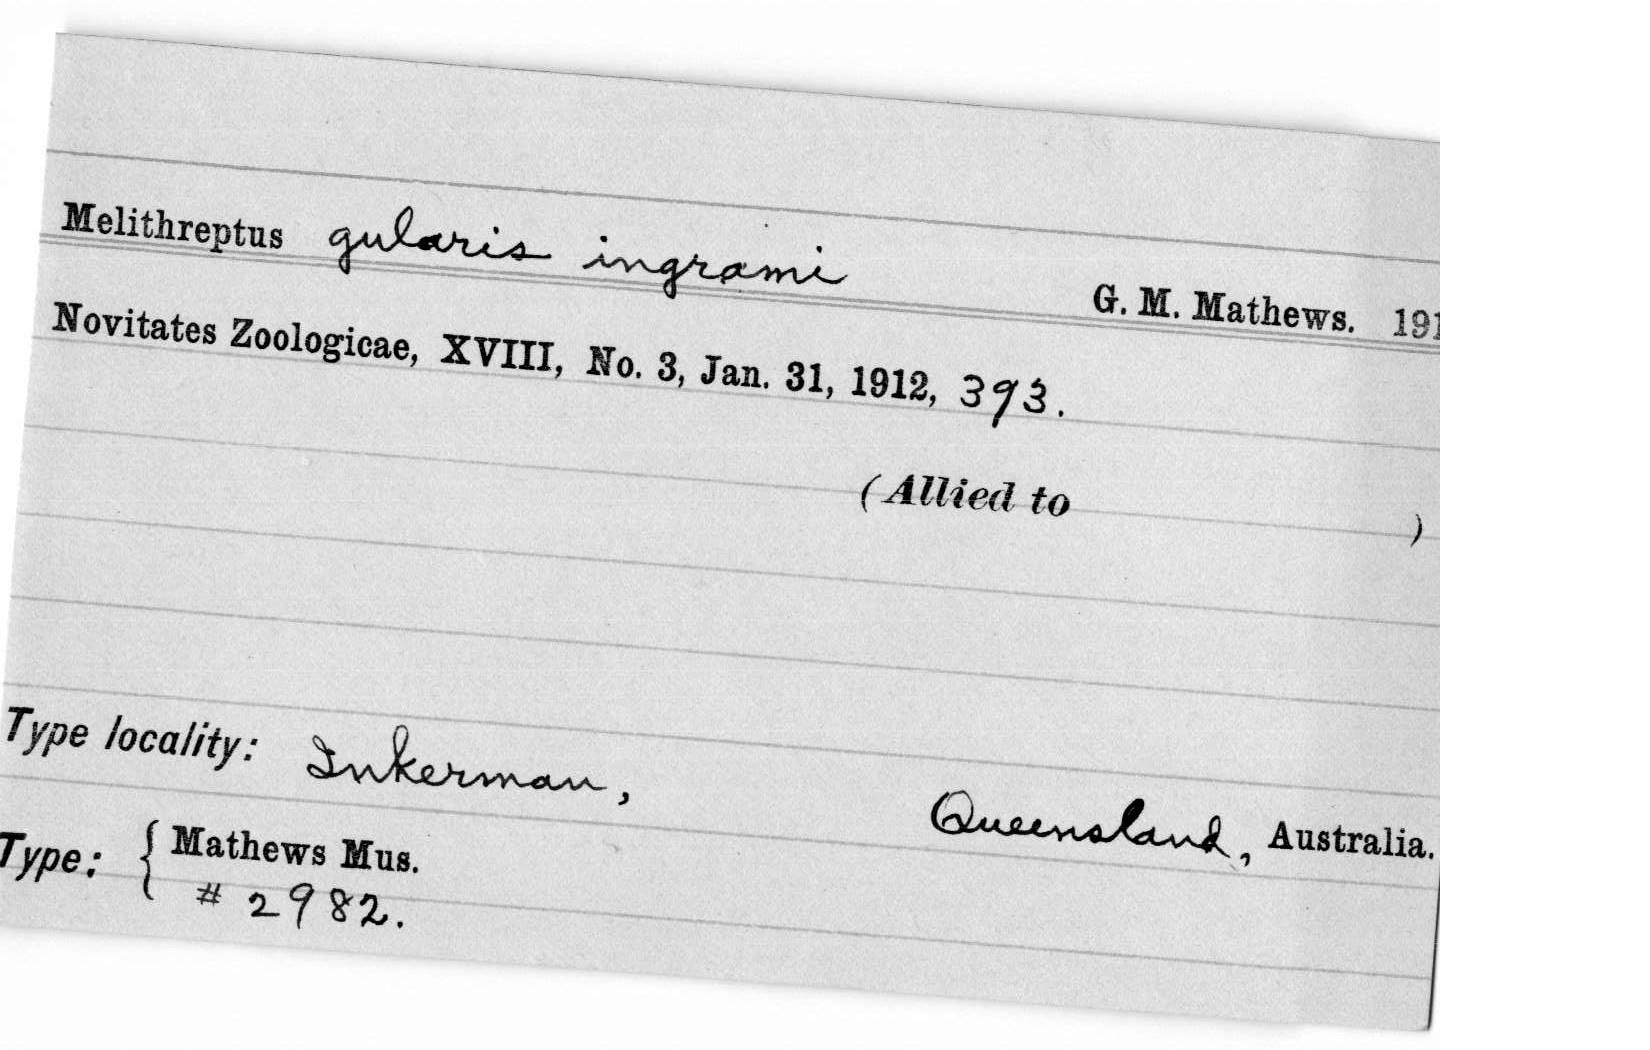 Melithreptus gularis ingrami G. M. Mathews. 191
Novitates Zoologicae, XVIII, No. 3, Jan. 31, 1912, 393.
(Allied to )
Type locality: Inkerman, Queensland, Australia.
Type: { Mathews Mus.
# 2982.